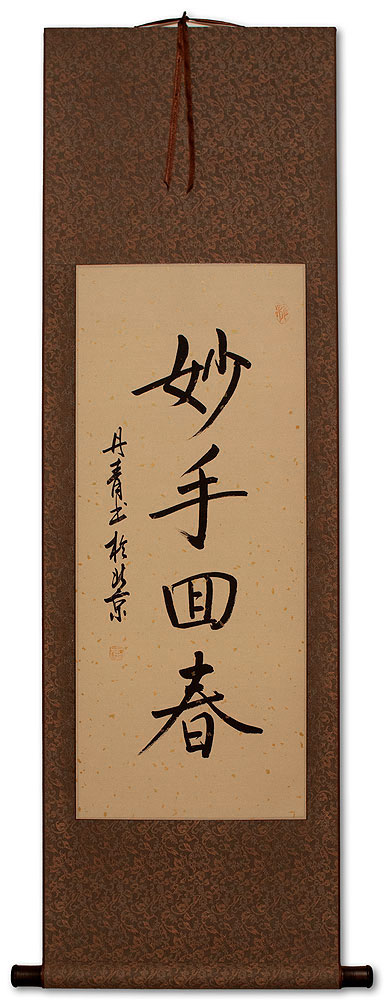 妙手回春
丹青书於北京